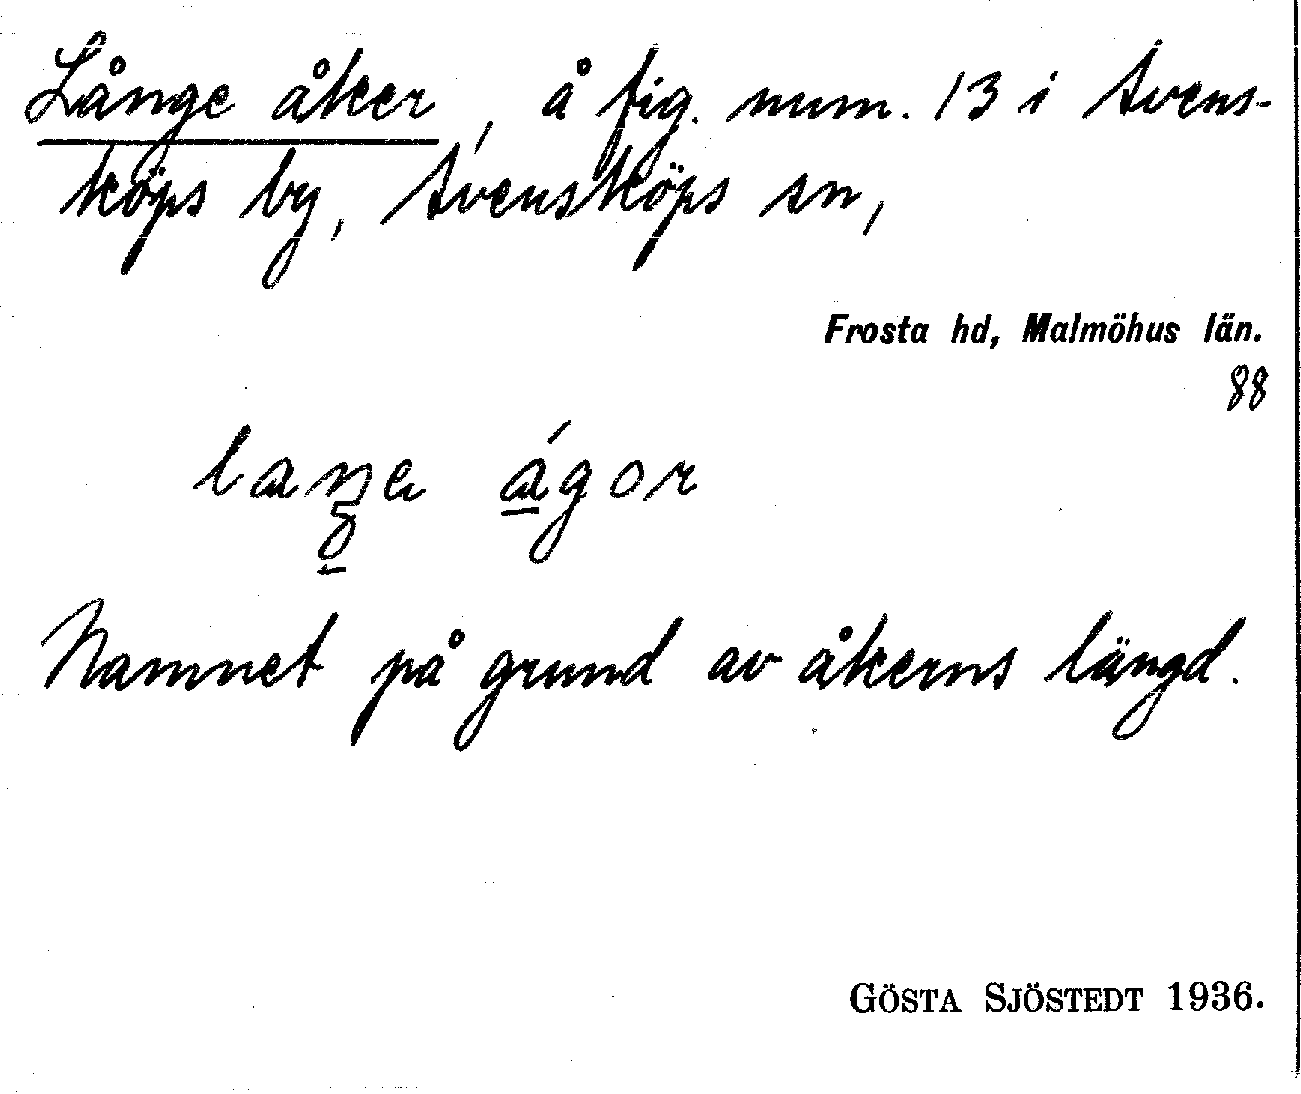 Långe åker, å fig. num. 13 i Svens-
köps by, Svensköps sn,
Frosta hd, Malmöhus län.
88
Namnet på grund av åkerns längd.
GÖSTA SJÖSTEDT 1936.